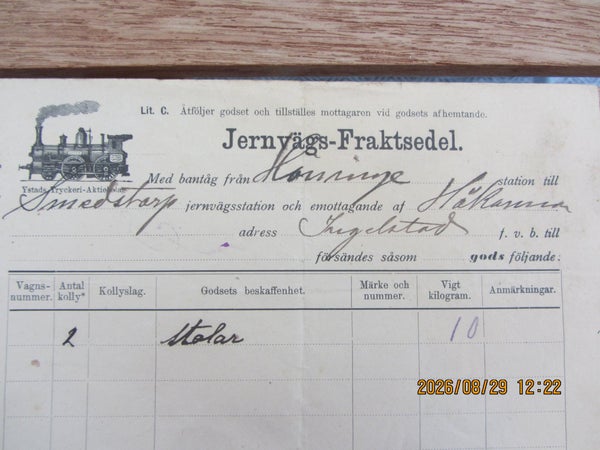 Lit. C. Åtföljer godset och tillställes mottagaren vid godsets afhemtande.
Jernvägs-Fraktsedel.
Ystads Tryckeri-Aktiebolag
Med bantåg från station till
Smedstorp jernvägsstation och emottagande af Håkanna
adress Ingelstad f. v. b. till
försändes såsom gods följande:
Vagns-nummer. Antal kolly* Kollyslag. Godsets beskaffenhet. Märke och nummer. Vigt kilogram. Anmärkningar.
2 stolar 10
2026/08/29 12:22